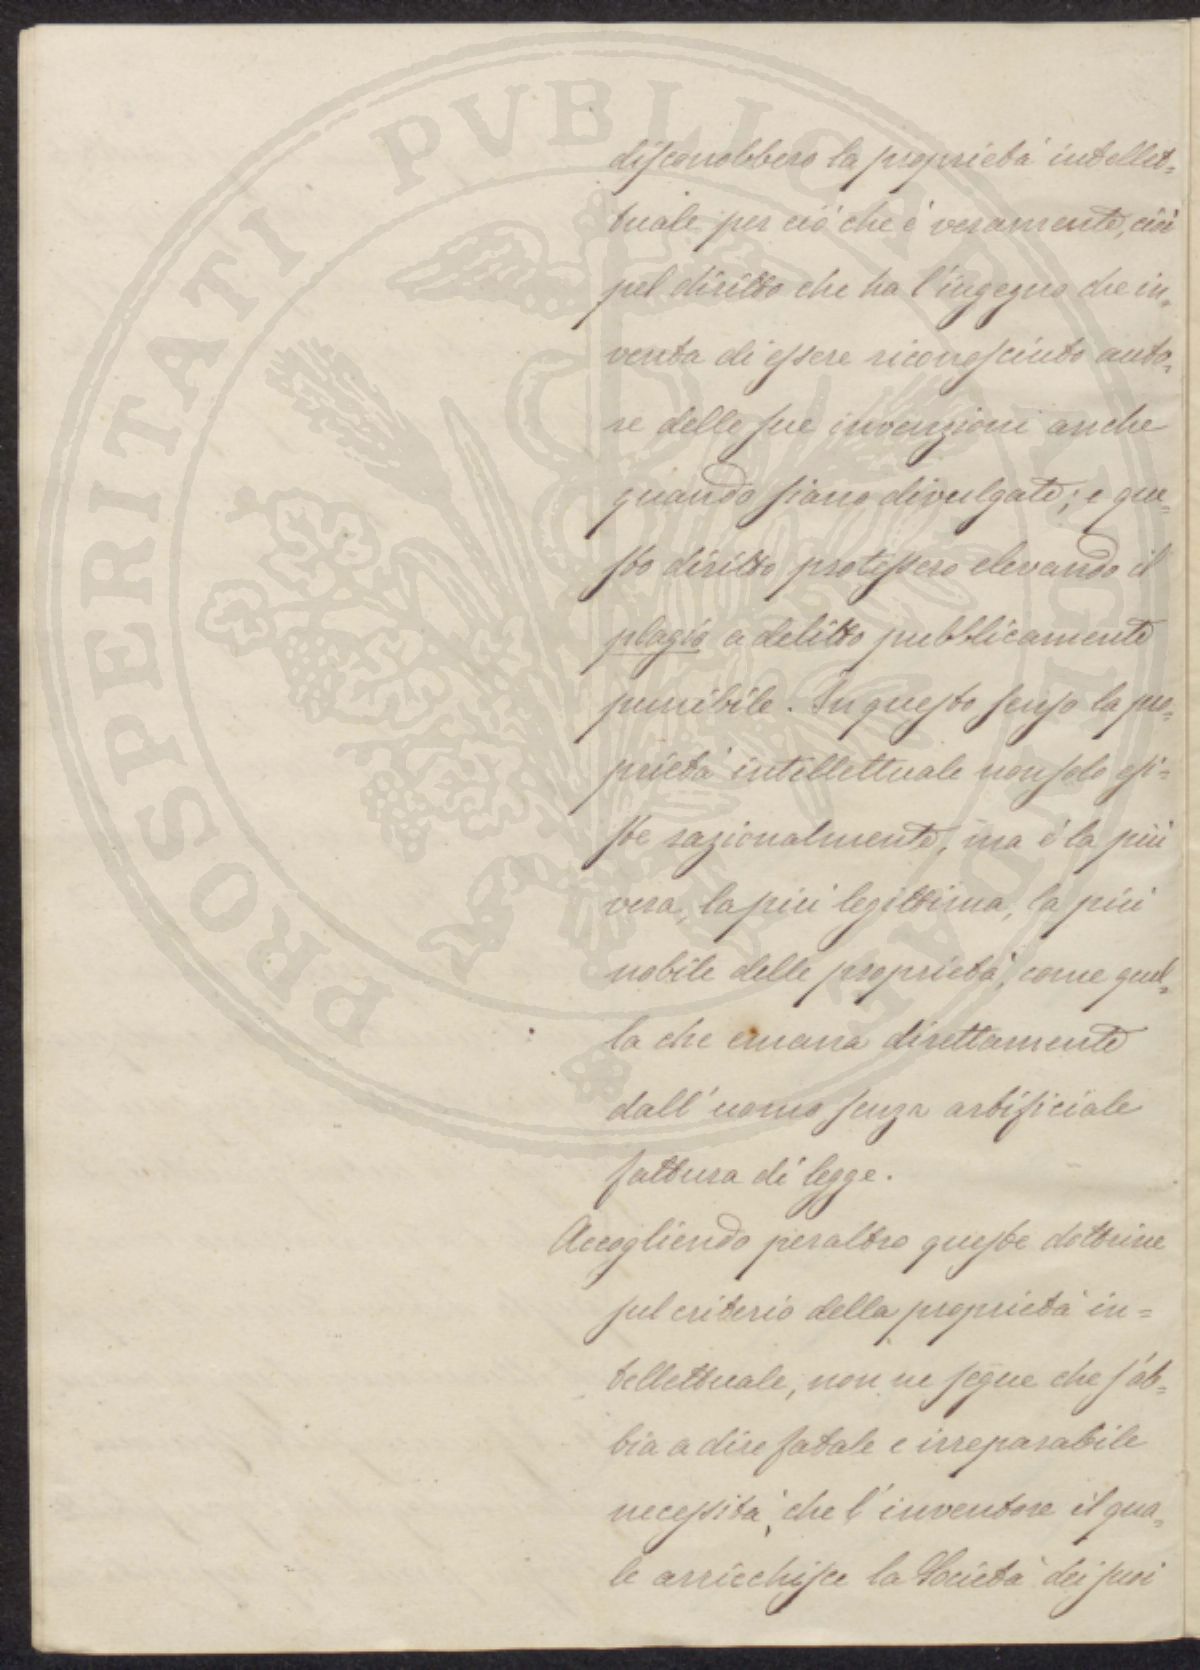 PROSPERITATI PVBLICAE AVGENDAE
disconobbero la proprietà intellet=
tuale per ciò che è veramente, cioè
pel diritto che ha l'ingegno che in=
venta di essere riconosciuto auto=
re delle sue invenzioni anche
quando siano divulgate; e que=
sto diritto protessero elevando il
plagio a delitto pubblicamente
punibile. In questo senso la pro=
prietà intellettuale non solo esi=
ste razionalmente, ma è la più
vera, la più legittima, la più
nobile delle proprietà, come quel=
la che emana direttamente
dall'uomo senza artificiale
fattura di legge.
Accogliendo peraltro queste dottrine
sul criterio della proprietà in=
tellettuale, non ne segue che s'ab=
bia a dire fatale e irreparabile
necessità, che l'inventore il qua=
le arricchisce la Società dei suoi